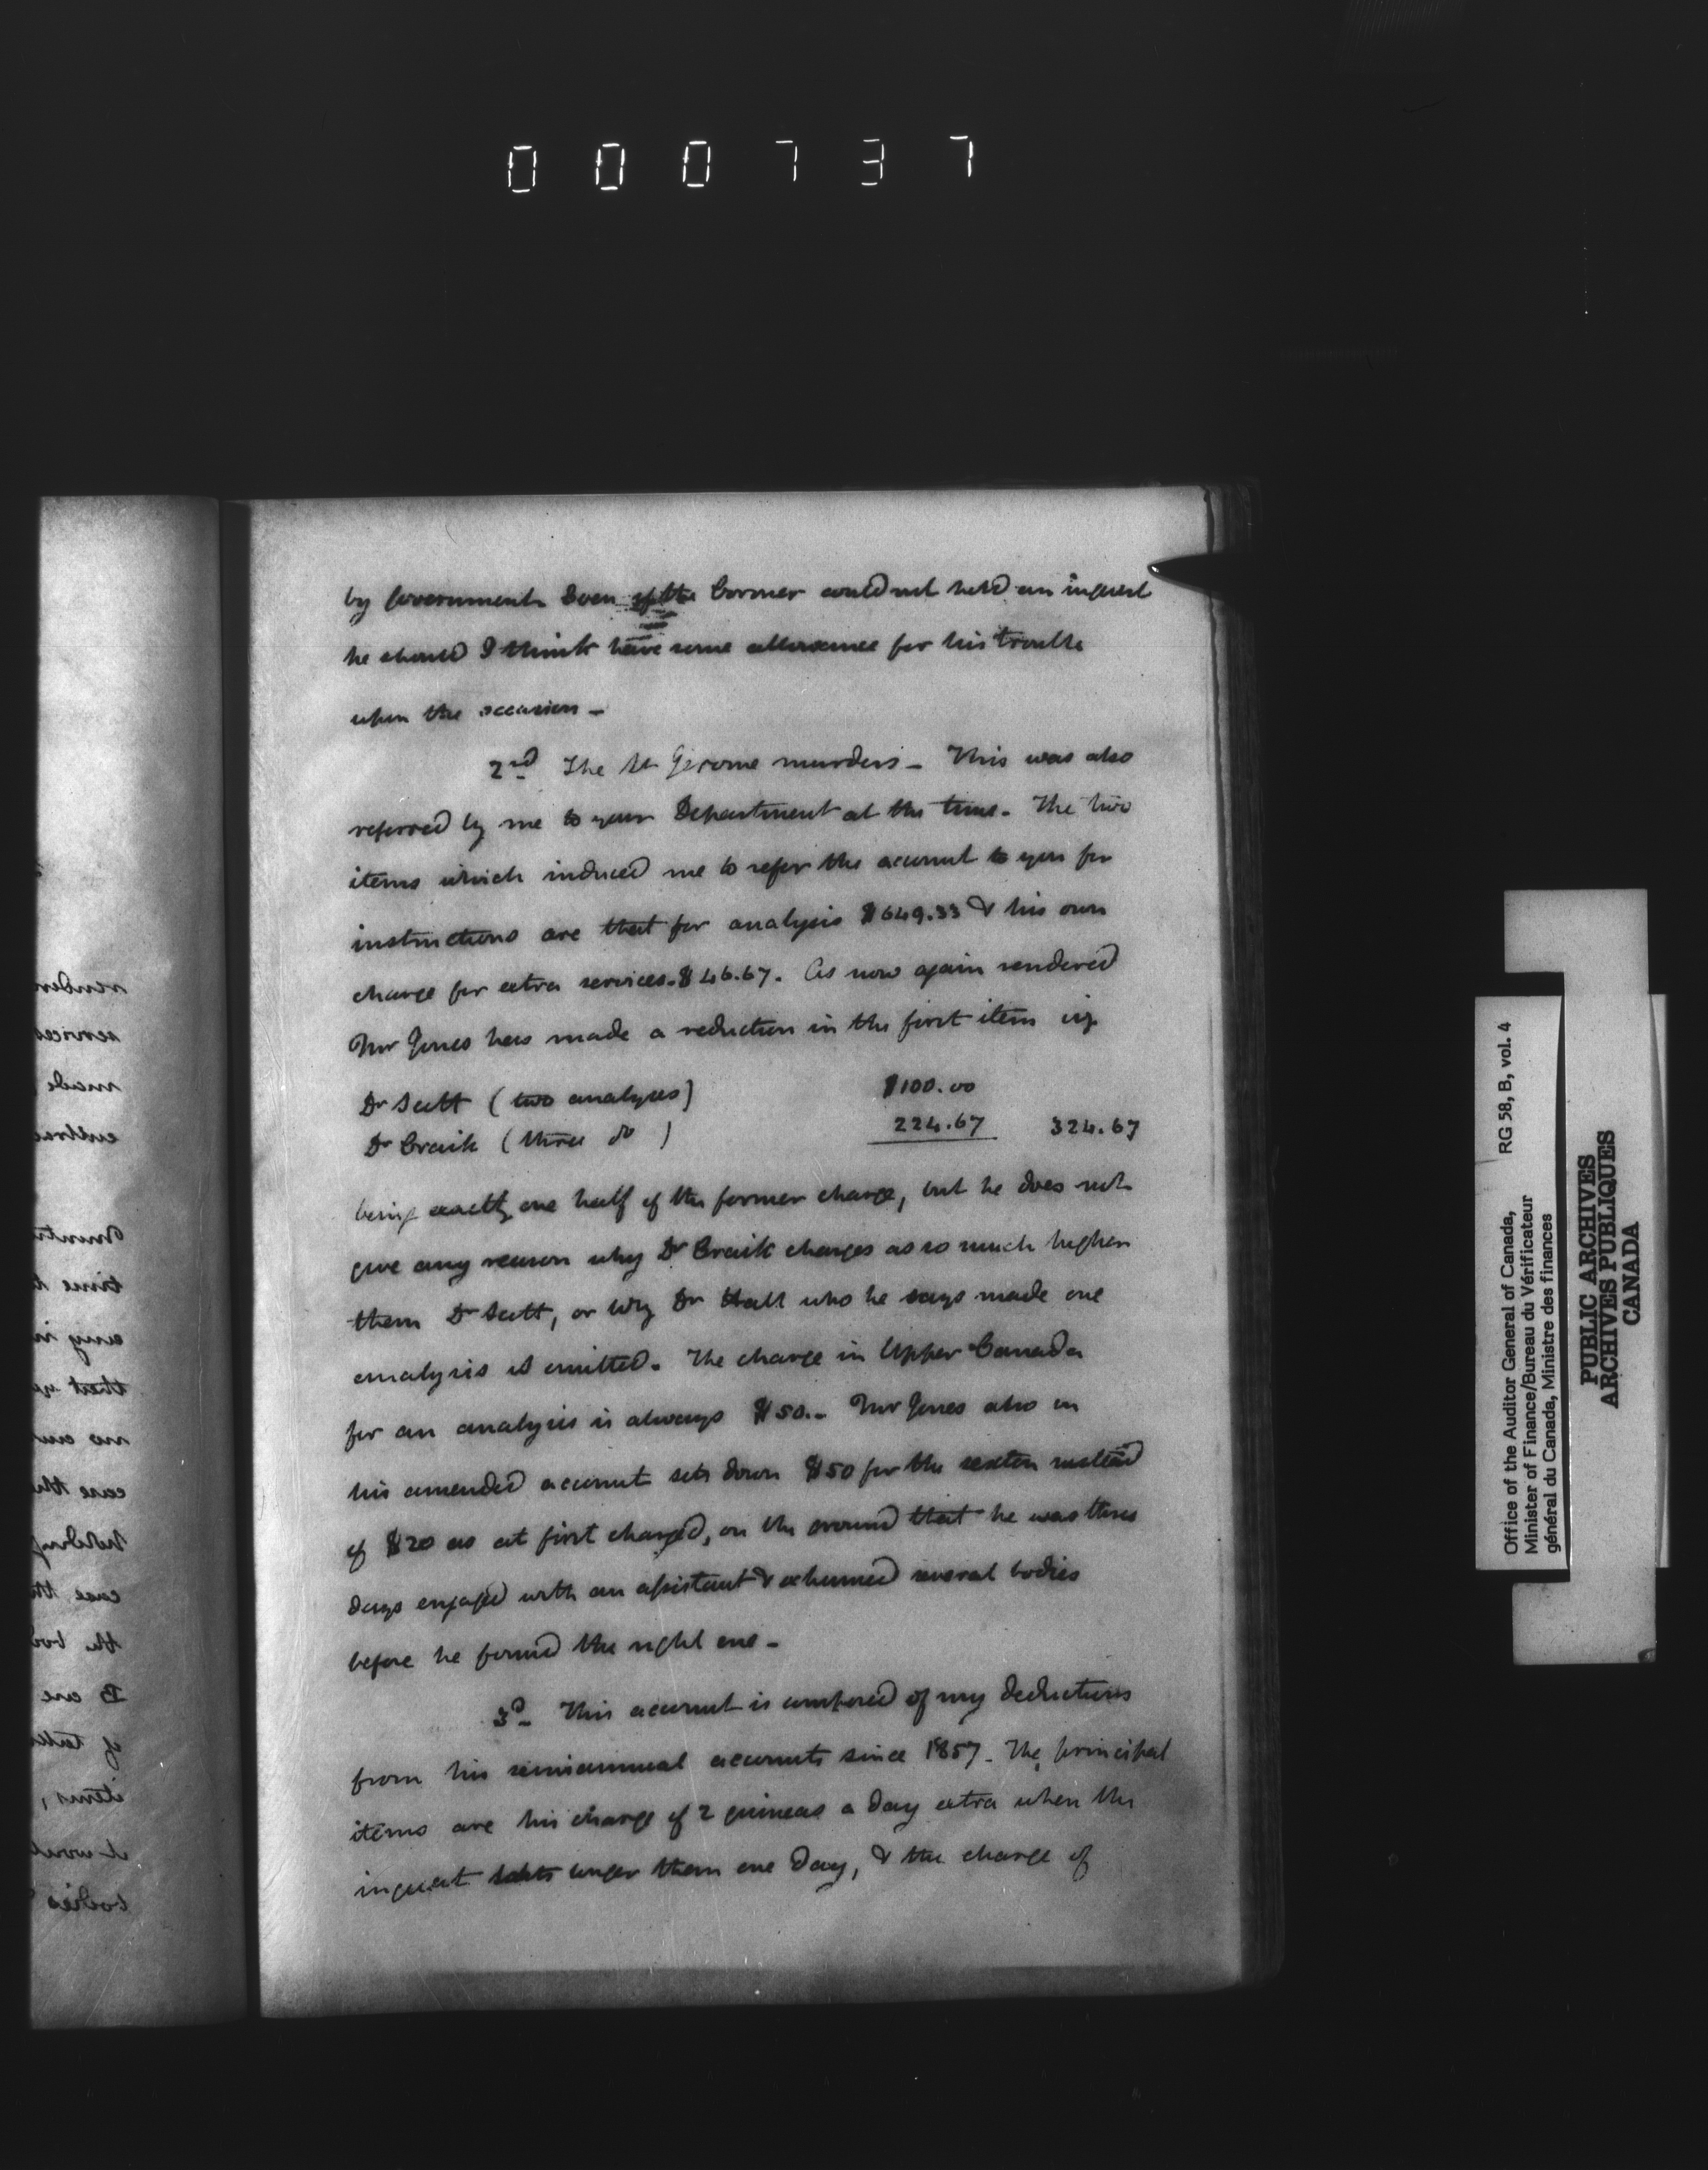 000737
by Government. Even if the Coroner could not hold an inquest
he should I think have some allowance for his trouble
upon the occasion —
2nd The St Jerome murders — This was also
referred by me to your Department at the time. The two
items which induced me to refer the account to you for
instructions are that for analysis $649.33 & his own
charge for extra services. $46.67. As now again rendered
Mr Jones has made a reduction in the first item viz
Dr Scott (two analyses) $100.00
Dr Craik (three do ) 224.67 324.67
being exactly one half of the former charge, but he does not
give any reason why Dr Craik charges as so much higher
than Dr Scott, or why Dr Hall who he says made one
analysis is omitted. The charge in Upper Canada
for an analysis is always $50.— Mr Jones also in
his amended account sets down $50 for the sexton instead
of $20 as at first charged, on the ground that he was three
days engaged with an assistant & exhumed several bodies
before he found the right one —
3d— This account is composed of my deductions
from his semiannual accounts since 1857. The principal
items are his charge of 2 guineas a day extra when the
inquest lasts longer than one day, & the charge of
Office of the Auditor General of Canada, RG 58, B, vol. 4
Minister of Finance/Bureau du Vérificateur
général du Canada, Ministre des finances
PUBLIC ARCHIVES
ARCHIVES PUBLIQUES
CANADA